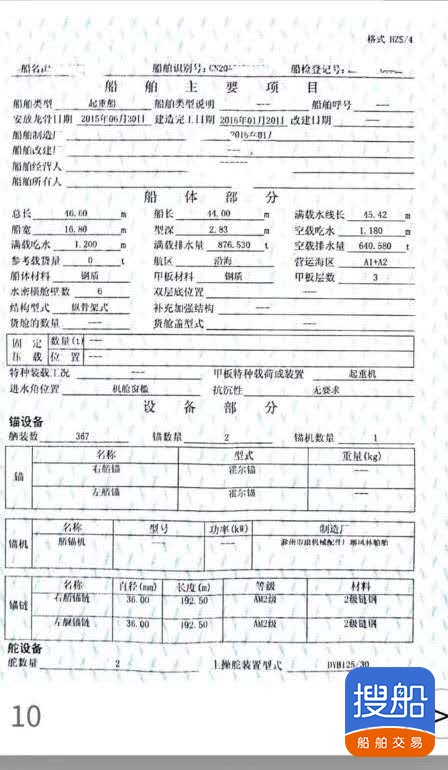 格式 HZS/4
船名 船舶识别号: CN20 船检登记号:
船 舶 主 要 项 目
船舶类型 起重船 船舶类型说明 --- 船舶呼号 ---
安放龙骨日期 2015年06月30日 建造完工日期 2016年01月20日 改建日期 ---
船舶制造厂 2016年01月
船舶改建厂 ---
船舶经营人
船舶所有人
船 体 部 分
总长 46.60 m 船长 44.00 m 满载水线长 45.42 m
船宽 16.80 m 型深 2.83 m 空载吃水 1.180 m
满载吃水 1.200 m 满载排水量 876.530 t 空载排水量 640.580 t
参考载货量 0 t 航区 沿海 营运海区 A1+A2
船体材料 钢质 甲板材料 钢质 甲板层数 3
水密横舱壁数 6 双层底位置 ---
结构型式 纵骨架式 补充加强结构 ---
货舱的数量 --- 货舱盖型式 ---
固 定 数量(t) ---
压 载 位 置 ---
特种装载工况 --- 甲板特种载荷或装置 起重机
进水角位置 机舱窗槛 抗沉性 无要求
设 备 部 分
锚设备
舾装数 367 锚数量 2 锚机数量 1
锚 名称 型式 重量(kg)
右艏锚 霍尔锚 ---
左艏锚 霍尔锚 ---
锚机 名称 型号 功率(kW) 制造厂
艏锚机 --- ---
锚链 名称 直径(mm) 长度(m) 等级 材料
右艏锚链 36.00 192.50 AM2级 2级链钢
左艏锚链 36.00 192.50 AM2级 2级链钢
舵设备
舵数量 2 主操舵装置型式 DYB125/30
10
搜船
船舶交易
>